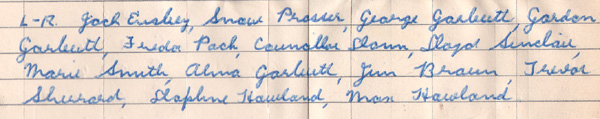 L-R. Jack Ensbey, Snow Prosser, George Garbutt, Gordon
Garbutt, Freda Pack, Councillor Dann, Lloyd Sinclair,
Marie Smith, Alma Garbutt, Jim Braun, Trevor
Sherrard, Daphne Howland, Max Howland